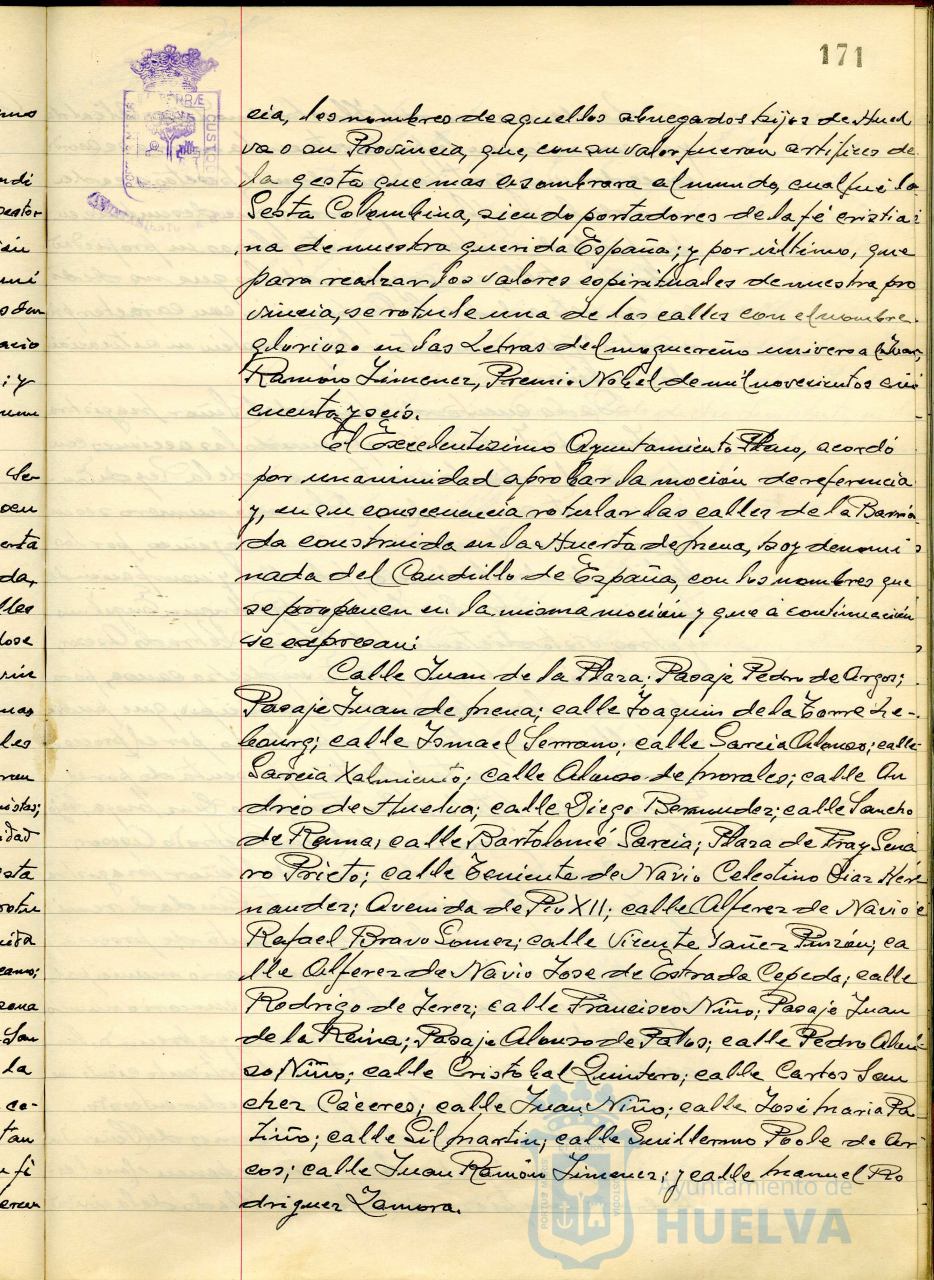 171
cia, los nombres de aquellos abnegados hijos de Huel
va o su Provincia, que, con su valor fueron artifices de
la gesta que mas asombrara al mundo, cual fué la
Gesta Colombina, siendo portadores de la fé cristia
na de nuestra querida España; y por último, que
para realzar los valores espirituales de nuestra pro
vincia, se rotule una de las calles con el nombre
glorioso en las Letras del moguereño universal Juan
Ramón Jimenez, Premio Nobel de mil novecientos cin
cuenta y seis.
El Excelentisimo Ayuntamiento Pleno, acordó
por unanimidad aprobar la moción de referencia
y, en su consecuencia rotular las calles de la Barria
da construida en la Huerta de Mena, hoy denomi
nada del Caudillo de España, con los nombres que
se proponen en la misma moción y que a continuación
se expresan:
Calle Juan de la Plaza; Pasaje Pedro de Argos;
Pasaje Juan de Mena; calle Joaquin de la Torre Le-
bourg; calle Ismael Serrano; calle Garcia Alonso; calle
Garcia Xalmiento; calle Alonso de Morales; calle An
dreo de Huelva; calle Diego Bermudez; calle Sancho
de Rama; calle Bartolomé Garcia; Plaza de Fray Gena
ro Prieto; calle Teniente de Navio Celestino Diaz Her
nandez; Avenida de Pio XII; calle Alferez de Navio
Rafael Bravo Gomez; calle Vicente Yañez Pinzón; ca
lle Alferez de Navio Jose de Estrada Cepeda; calle
Rodrigo de Jerez; calle Francisco Niño; Pasaje Juan
de la Reina; Pasaje Alonso de Palos; calle Pedro Alon
so Niño; calle Cristobal Quintero; calle Carlos San
chez Cáceres; calle Juan Niño; calle José Maria Pa
tiño; calle Gil Martin; calle Guillermo Poole de Ar
cos; calle Juan Ramón Jimenez; y calle Manuel Ro
driguez Zamora.
Ayuntamiento de
HUELVA